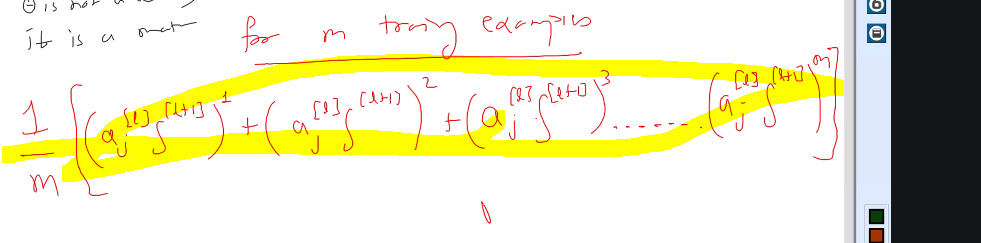 θ is not a
it is a mat
for m traing examples
1/m [(a_j^[l] δ^[l+1])^1 + (a_j^[l] δ^[l+1])^2 + (a_j^[l] δ^[l+1])^3 ....... (a_j^[l] δ^[l+1])^m]